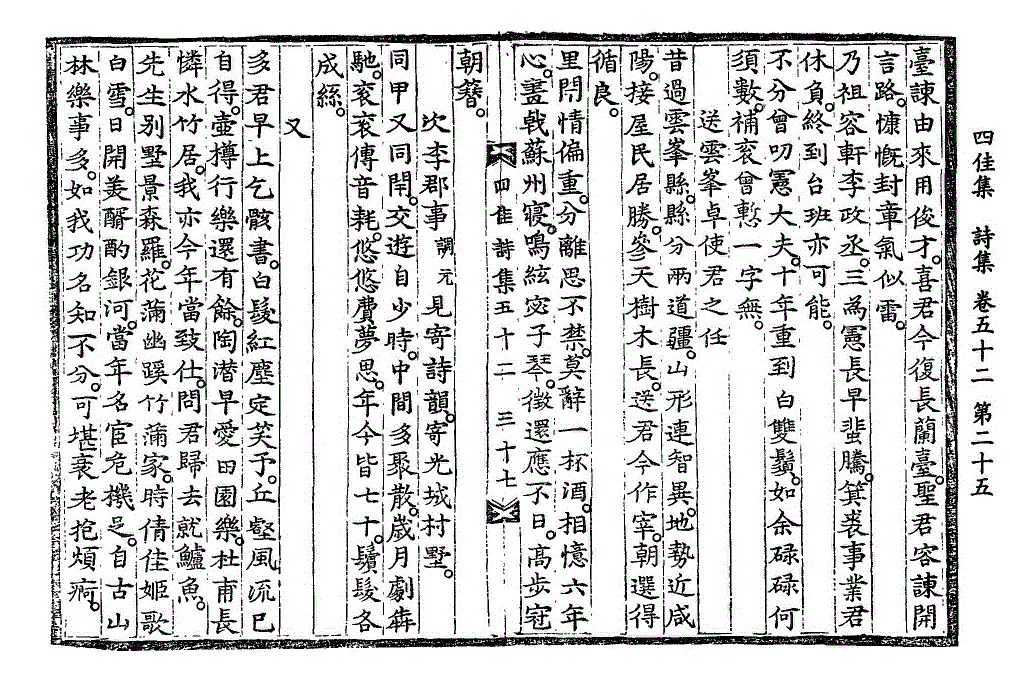 四佳集 詩集 卷五十二 第二十五
臺諫由來用俊才。喜君今復長蘭臺。聖君容諫開
言路。慷慨封章氣似雷。
乃祖容軒李政丞。三為憲長早蜚騰。箕裘事業君
休負。終到台班亦可能。
不分曾叨憲大夫。十年重到白雙鬚。如余碌碌何
須數。補衮曾慙一字無。
送雲峯卓使君之任
昔過雲峯縣。縣分兩道疆。山形連智異。地勢近咸
陽。接屋民居勝。參天樹木長。送君今作宰。朝選得
循良。
里閈情偏重。分離思不禁。莫辭一杯酒。相憶六年
心。畫戟蘇州寢。鳴絃宓子琴。徵還應不日。高步冠
朝簪。
四佳詩集五十二 三十七
次李郡事調元見寄詩韻。寄光城村墅。
同甲又同閈。交遊自少時。中間多聚散。歲月劇犇
馳。衮衮傳音耗。悠悠費夢思。年今皆七十。鬚髮各
成絲。
又
多君早上乞骸書。白髮紅塵定笑予。丘壑風流已
自得。壺樽行樂還有餘。陶潛早愛田園樂。杜甫長
憐水竹居。我亦今年當致仕。問君歸去就鱸魚。
先生別墅景森羅。花滿幽蹊竹滿家。時倩佳姬歌
白雪。日開羙醑酌銀河。當年名宦危機足。自古山
林樂事多。如我功名知不分。可堪衰老抱煩痾。